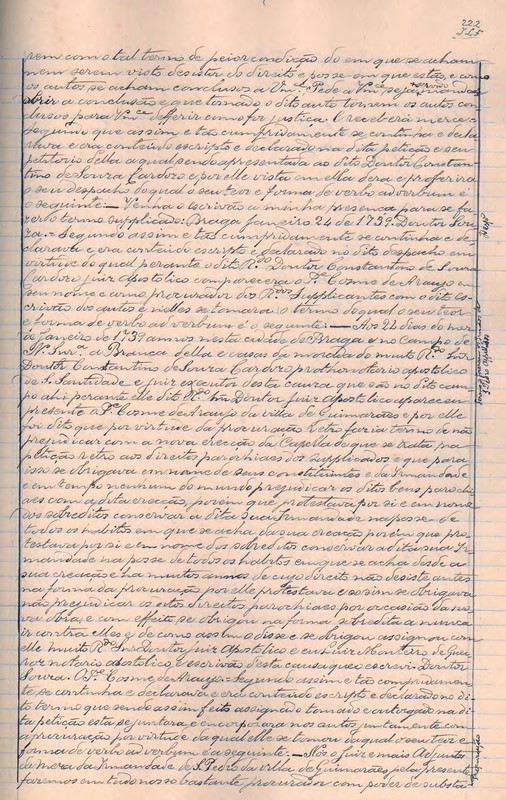 222
rem com o tal termo de peior condição do em que se acham
nem serem visto desistir do direito e posse em que estão, e como
os autos se acham conclusos a Vm.ce Pede a Vm.ce seja servido mandar
abrir a conclusão e que tomado o dito auto tornem os autos con
clusos para Vm.ce deferir como for justiça. E receberá mercê =
Segundo que assim e tão cumpridamente se continha e decla
rava e era conteúdo escripto e declarado na dita petição e seu
petitorio della a qual sendo apresentada ao dito Doutor Constan-
tino de Souza Cardozo e por elle vista em ella dera e proferira
o seu despacho do qual o seu teor e forma de verbo ad verbum é
o seguinte: — Venha o escrivão a minha presença para se fa
zer o termo supplicado. Braga Janeiro 24 de 1739. Doutor Sou
za. = Segundo assim e tão cumpridamente se continha e de
clarava e era conteúdo escripto e declarado no dito despacho em
virtude do qual perante o dito R.do Doutor Constantino de Souza
Cardozo juiz apostolico comparecera o P.e Cosme de Araujo em
seu nome e como procurador dos R.dos Supplicantes com o dito es-
crivão dos autos e nelles se tomara o termo do qual o seu teor
e forma de verbo ad verbum é o seguinte: — Aos 22 dias do mez
de janeiro de 1739 annos nesta cidade de Braga e no Campo de
N. Snr.a a Branca della e casas da morada do muito R.do Snr
Doutor Constantino de Souza Cardozo prothonotario apostolico
de S. Santidade e juiz executor desta causa que são no dito cam
po ahi perante elle dito R.do Snr Doutor juiz apostolico appareceu
presente o P.e Cosme de Araujo da villa de Guimarães e por elle
foi dito que por virtude da procuração retro fazia termo de não
prejudicar com a nova erecção da Capella de que se trata na
petição retro aos direitos parochiaes dos supplicados e que para
isso se obrigava em nome de seus constituintes e da Irmandade
e em tempo nenhum do mundo prejudicar os ditos bens parochi
aes com a dita creação, porém que protestava por si e em nome
dos sobreditos conservar a dita sua Irmandade na posse de
todos os habitos em que se acha da sua creação porém que pro
testava por si e em nome dos sobreditos conservar a dita sua Ir
mandade na posse de todos os habitos em que se acha desde a
sua creação e ha muitos annos de cujo direito não desiste antes
na forma da procuração por elle protestava e só sim se obrigava
não prejudicar os ditos direitos parochiaes por occasião da no
va obra, e com effeito se obrigou na forma sobredita a nunca
ir contra elles e de como assim o disse e se obrigou assignou com
elle muito R.do Snr Doutor Juiz Apostolico e eu Luiz Monteiro de
notario apostolico e escrivão desta causa que o escrevi. Doutor
Souza. O P.e Cosme de Araujo. Segundo assim e tão cumpridamen
te se continha e declarava e era conteúdo escripto e declarado no di
to termo que sendo assim feito assignado tomado e outorgado na di
ta petição esta se juntara e encorporara nos autos juntamente com
a procuração por virtude da qual elle se tomou da qual o seu teor e
forma de verbo ad verbum é a seguinte: — Nós o Juiz e mais Adjuntos
da Meza da Irmandade de S. Pedro da villa de Guimarães pela presente
fazemos em tudo nosso bastante procurador com poder de substa